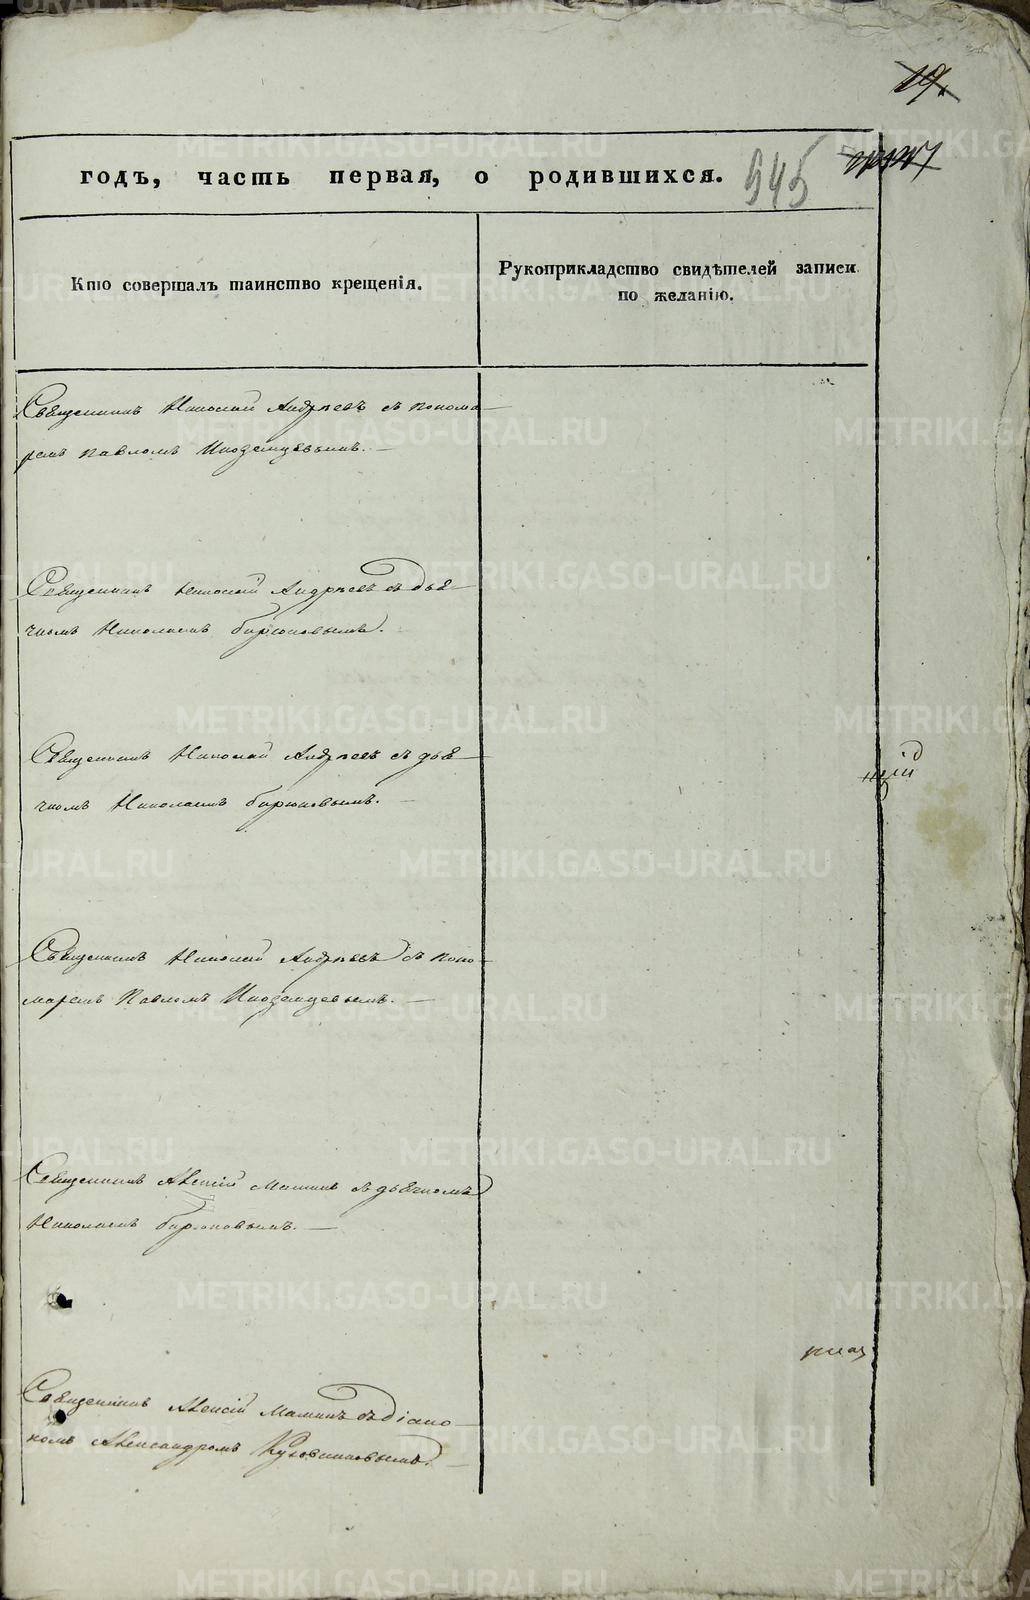 19.
545
годъ, часть первая, о родившихся.
Кто совершалъ таинство крещенія.
Рукоприкладство свидѣтелей записи
по желанію.
Священникъ Николай Андреевъ съ понома-
ремъ Павломъ Иноземцевымъ.
Священникъ Николай Андреевъ съ дьяч-
комъ Николаемъ Бирюковымъ.
Священникъ Николай Андреевъ съ дья-
чкомъ Николаемъ Бирюковымъ.
щій
Священникъ Николай Андреевъ съ поно-
маремъ Павломъ Иноземцевымъ.
Священникъ Алексій Маминъ съ дьячкомъ
Николаемъ Бирюковымъ.
Священникъ Алексій Маминъ съ діако-
номъ Александромъ Кузовниковымъ.
METRIKI.GASO-URAL.RU